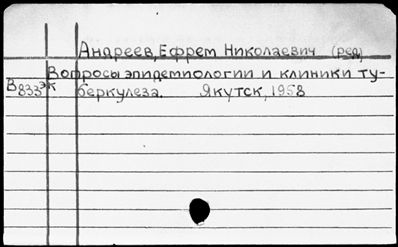 Андреев, Ефрем Николаевич (ред)
Вопросы эпидемиологии и клиники ту-
В833эк беркулеза. Якутск, 1958